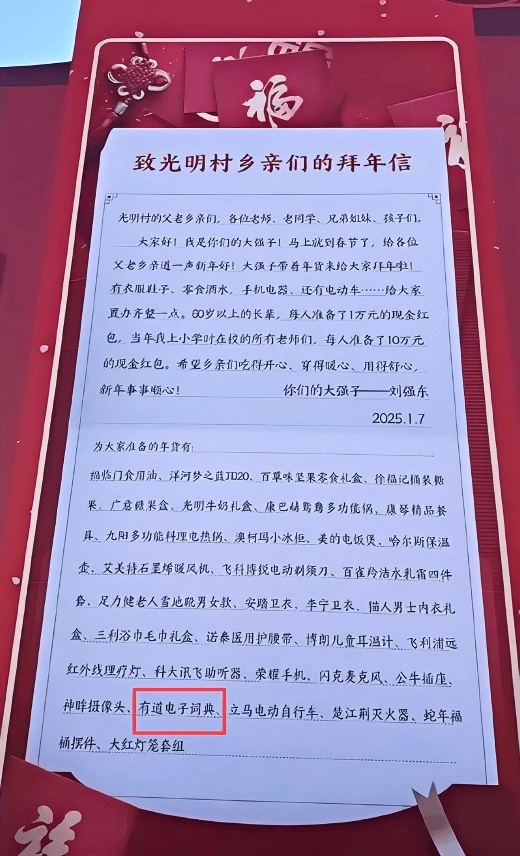 福
致光明村乡亲们的拜年信
光明村的父老乡亲们，各位老师、老同学、兄弟姐妹、孩子们，
大家好！我是你们的大强子！马上就到春节了，给各位
父老乡亲道一声新年好！大强子带着年货来给大家拜年啦！
有衣服鞋子、零食酒水，手机电器、还有电动车……给大家
置办齐整一点。60岁以上的长辈，每人准备了1万元的现金红
包，当年我上小学时在校的所有老师们，每人准备了10万元
的现金红包。希望乡亲们吃得开心、穿得暖心、用得舒心，
新年事事顺心！ 你们的大强子——刘强东
2025.1.7
为大家准备的年货有
福临门食用油、洋河梦之蓝JD20、百草味坚果零食礼盒、徐福记桶装糖
果、广意糖果盒、光明牛奶礼盒、康巴赫鸳鸯多功能锅，康琴精品餐
具、九阳多功能料理电热锅、澳柯玛小冰柜、美的电饭煲、哈尔斯保温
壶、艾美特石墨烯暖风机、飞科博锐电动剃须刀、百雀羚洁水乳霜四件
套、足力健老人雪地靴男女款、安踏卫衣、李宁卫衣、猫人男士内衣礼
盒、三利浴巾毛巾礼盒、诺泰医用护腰带、博朗儿童耳温计、飞利浦远
红外线理疗灯、科大讯飞助听器、荣耀手机、闪克麦克风、公牛插座、
神眸摄像头、有道电子词典、立马电动自行车、楚江荆灭火器、蛇年福
桶摆件、大红灯笼套组
福